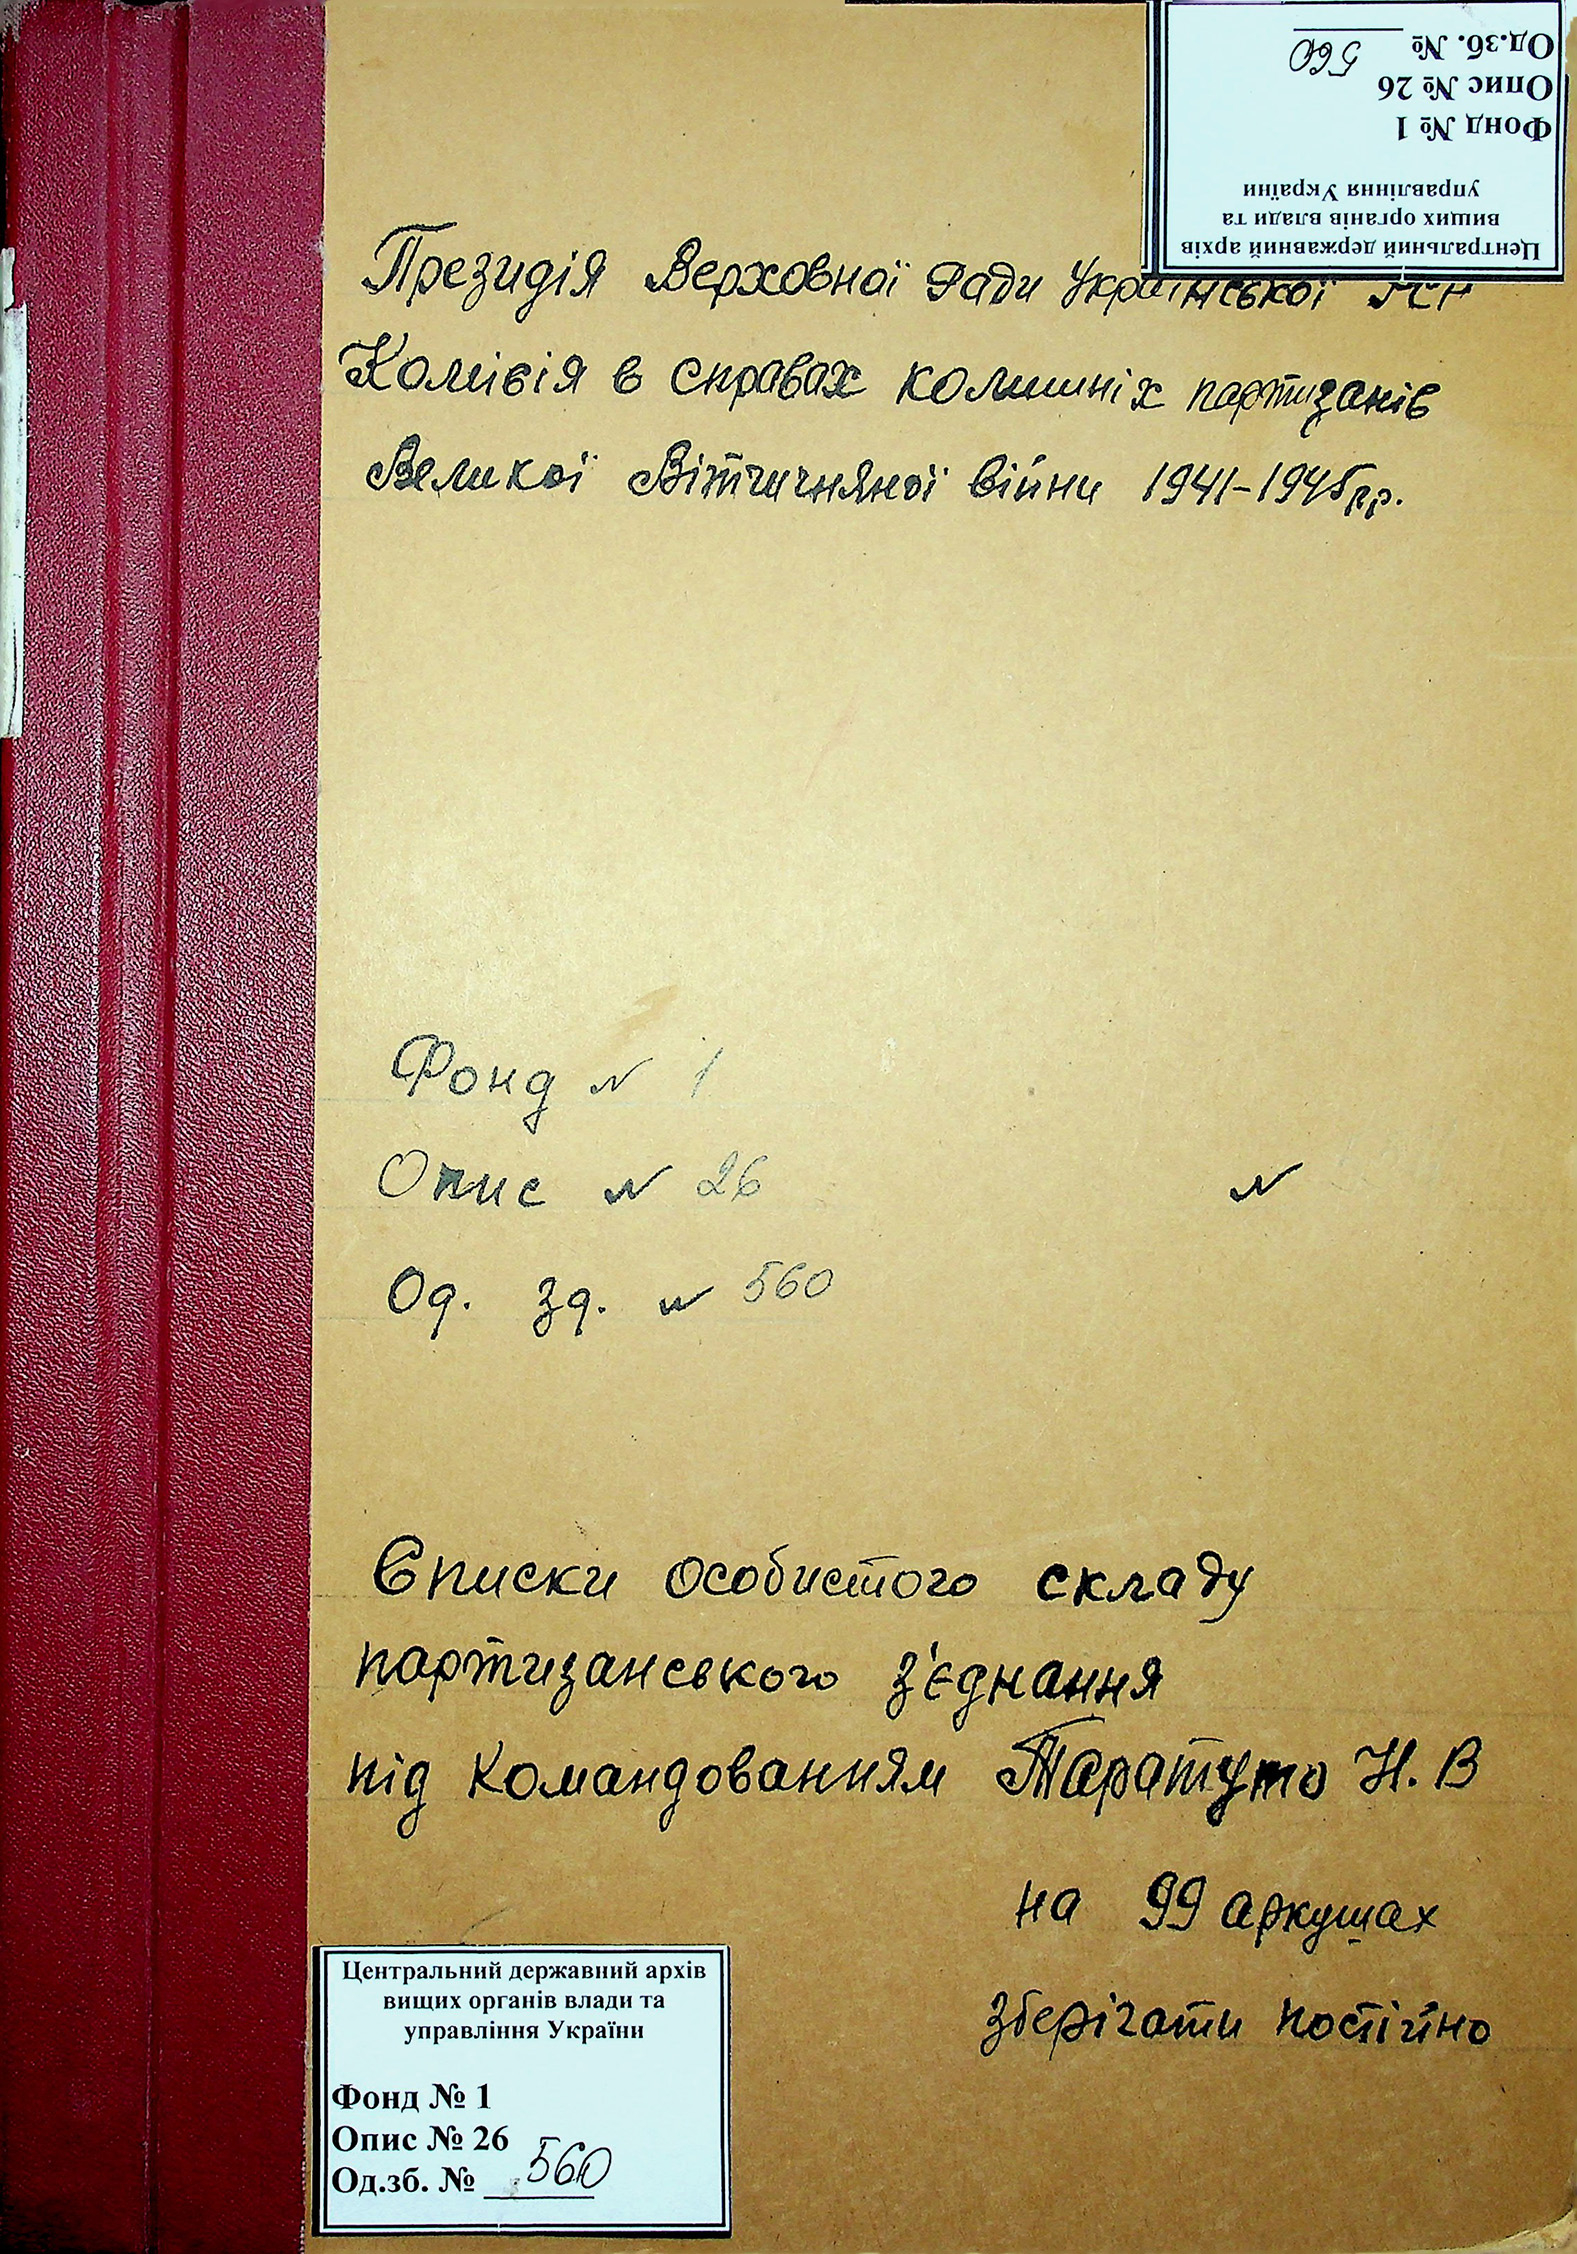 Од.зб. № 560
Опис № 26
Фонд № 1
Центральний державний архів
вищих органів влади та
управління України
Президія Верховної Ради Української
Комісія в справах колишніх партизанів
Великої Вітчизняної війни 1941-1945 рр.
Фонд № 1
Опис № 26 №
Од. зд. № 560
Списки особистого складу
партизанського з'єднання
під командованням Таратуто Н. В
на 99 аркушах
зберігати постійно
Центральний державний архів
вищих органів влади та
управління України
Фонд № 1
Опис № 26
Од.зб. № 560